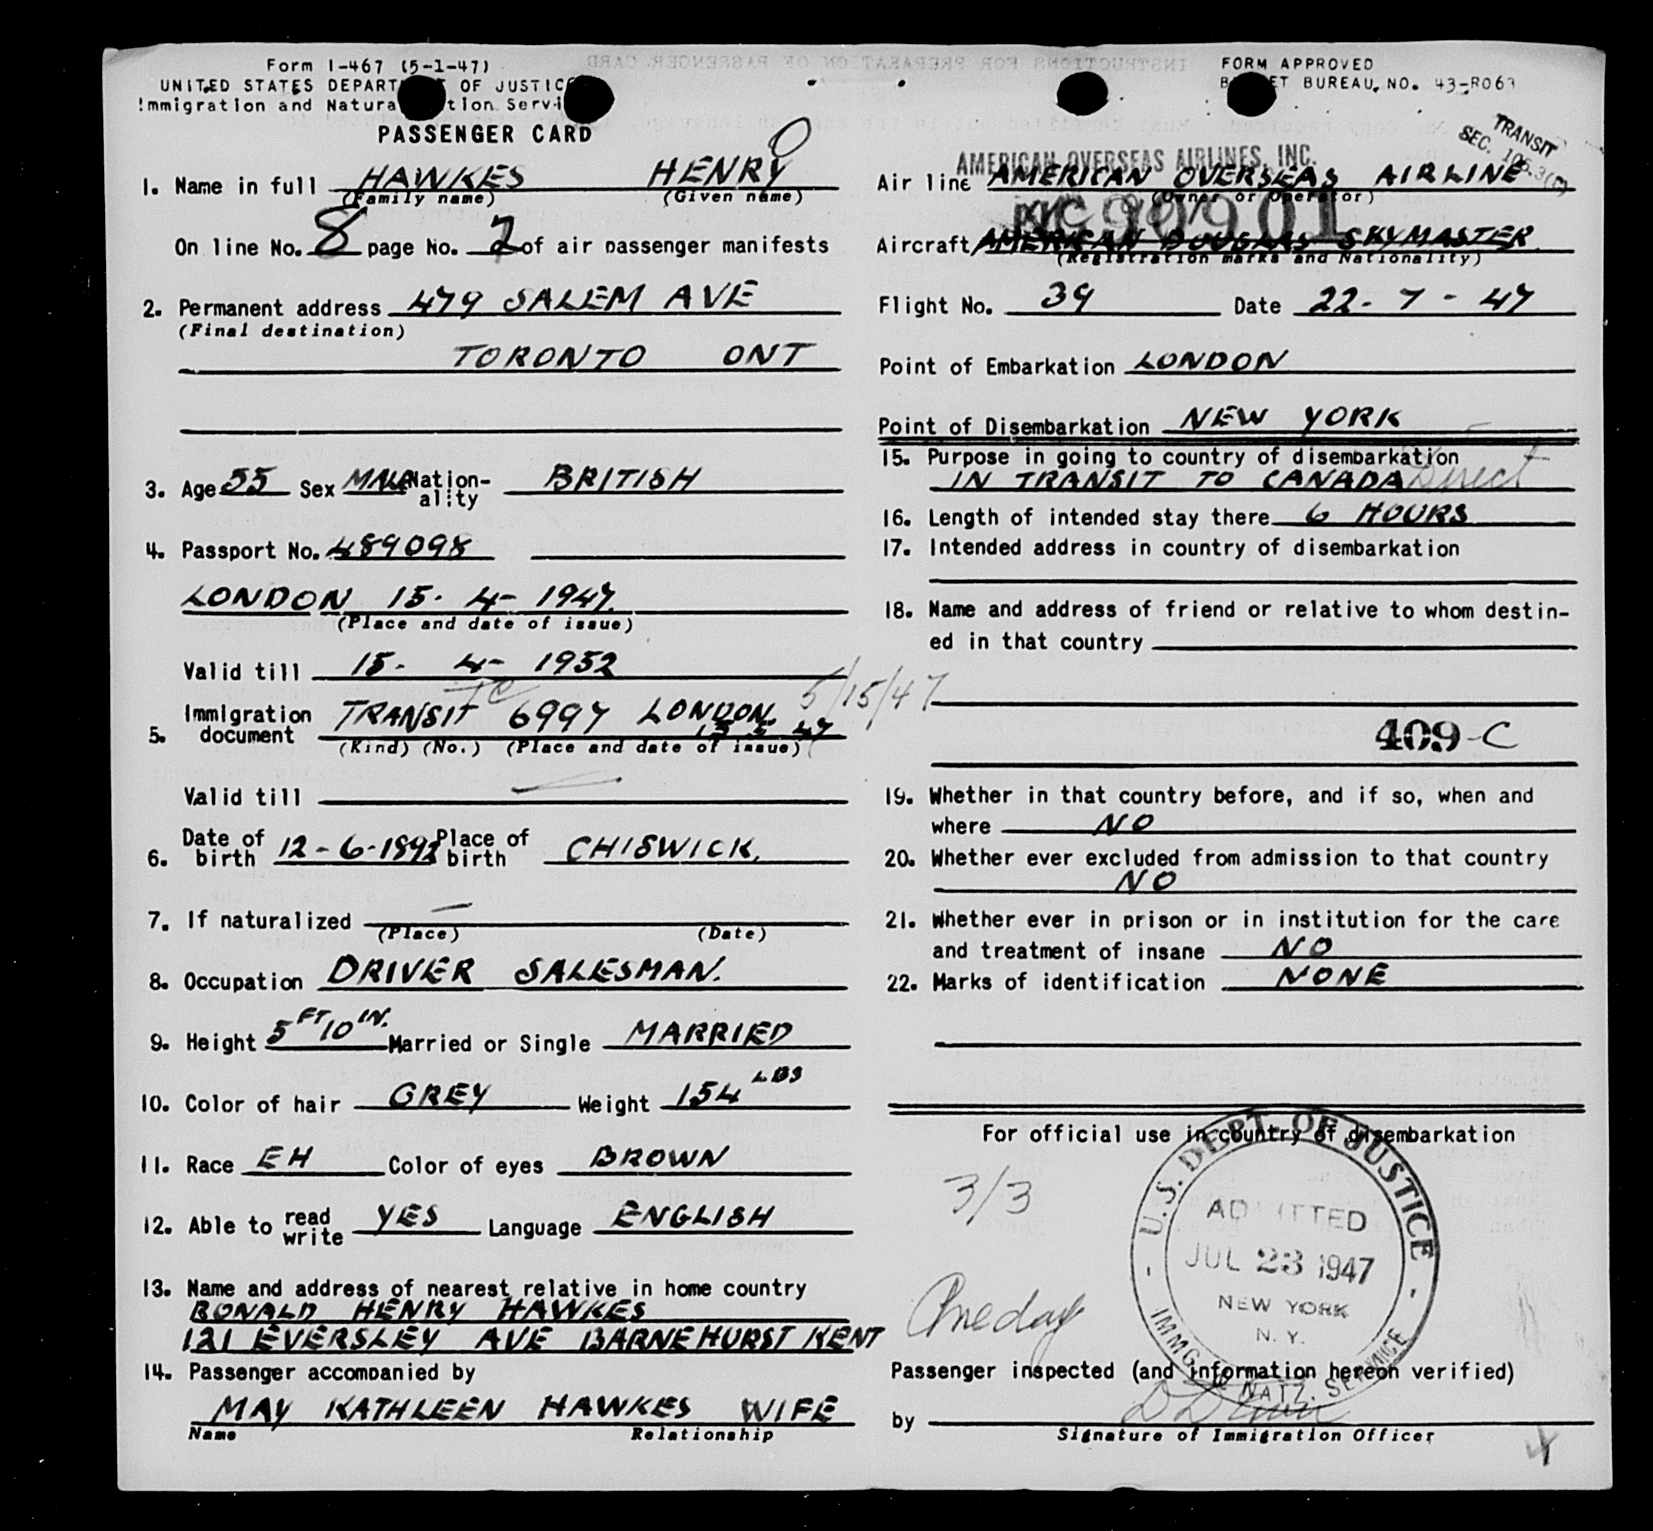 Form I-467 (5-1-47)
UNITED STATES DEPART OF JUSTICE
Immigration and Natura tion Servi
PASSENGER CARD
1. Name in full HAWKES HENRY
(Family name) (Given name)
On line No. 8 page No. 2 of air passenger manifests
2. Permanent address 479 SALEM AVE
(Final destination)
TORONTO ONT
3. Age 55 Sex MALE Nation-
ality BRITISH
4. Passport No. 489098
LONDON 15. 4- 1947.
(Place and date of issue)
Valid till 15. 4- 1952
5. Immigration
document TRANSIT 6997 LONDON.
15 5 47
5/15/47
(Kind) (No.) (Place and date of issue)
Valid till
6. Date of
birth 12-6-1892 Place of
birth CHISWICK.
7. If naturalized —
(Place) (Date)
8. Occupation DRIVER SALESMAN.
9. Height 5 FT 10 IN. Married or Single MARRIED
10. Color of hair GREY Weight 154 LBS
11. Race EH Color of eyes BROWN
12. Able to read
write YES Language ENGLISH
13. Name and address of nearest relative in home country
RONALD HENRY HAWKES
121 EVERSLEY AVE BARNEHURST KENT
14. Passenger accompanied by
MAY KATHLEEN HAWKES WIFE
Name Relationship
FORM APPROVED
B ET BUREAU NO. 43-R063
TRANSIT
SEC.
AMERICAN OVERSEAS AIRLINES, INC.
Air line AMERICAN OVERSEAS AIRLINE
(Owner or Operator)
NC 90901
Aircraft AMERICAN DOUGLAS SKYMASTER.
(Registration marks and Nationality)
Flight No. 39 Date 22-7-47
Point of Embarkation LONDON
Point of Disembarkation NEW YORK
15. Purpose in going to country of disembarkation
IN TRANSIT TO CANADA Direct
16. Length of intended stay there 6 HOURS
17. Intended address in country of disembarkation
18. Name and address of friend or relative to whom destin-
ed in that country
409-C
19. Whether in that country before, and if so, when and
where NO
20. Whether ever excluded from admission to that country
NO
21. Whether ever in prison or in institution for the care
and treatment of insane NO
22. Marks of identification NONE
For official use in country of disembarkation
3/3
U.S. DEPT. OF JUSTICE
ADMITTED
JUL 23 1947
NEW YORK
N.Y.
IMMG. NATZ. SERVICE
One day
Passenger inspected (and information hereon verified)
by
Signature of Immigration Officer
4